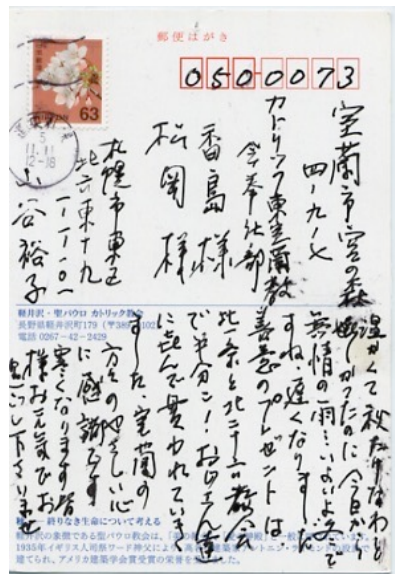 郵便はがき
63
11.11
12-18
050-0073
室蘭市宮の森
四-九-七
カトリック東室蘭教
会奉仕部
香島様
松岡様
札幌市東区
北六東十九
小谷裕子
軽井沢・聖パウロ カトリック教会
長野県軽井沢町179(〒389-0102)
電話 0267-42-2429
温かくて秋たけなわと
無情の雨…いよいよ冬で
すね、遅くなりました
善意のプレゼントは
北一条と北二十六教会
で半分ン!おじさん達
に喜んで貰われていき
ました。室蘭の
方々のやさしい心
に感謝です
寒くなります皆
様お元気でお
過ごし下さいませ
終りなき生命について考える
軽井沢の象徴である聖パウロ教会は、
1935年イギリス人司祭ワード神父により
建てられ、アメリカ建築学会賞受賞の栄誉を